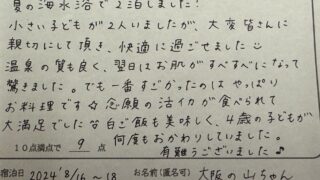 夏の海水浴で2泊しました!
小さい子どもが2人いましたが、大変皆さんに
親切にして頂き、快適に過ごせました
温泉の質も良く、翌日はお肌がすべすべになって
驚きました。でも一番すごかったのは やっぱり
お料理です☆念願の活イカが食べられて
大満足でした 白ご飯も美味しく、4歳の子どもが
何度もおかわりしていました。
10点満点で 9 点
有難うございました♪
宿泊日 2024'8/16~18 お名前(匿名可) 大阪の山ちゃん